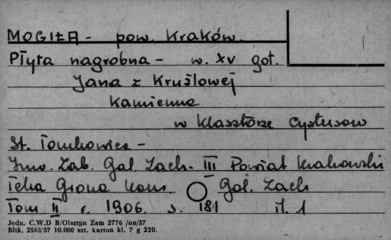 MOGIŁA - pow. Kraków.
Płyta nagrobna - w. XV got.
Jana z Kruślowej
kamienna
w klasztorze Cystersów
St. Tomkowicz -
Inw. Zab. Gal. Zach. III Powiat Krakowski
Teka Grona Kons. Gal. Zach
Tom II r. 1906. s. 181 il. 1
Jedn. C.W.D B/Olsztyn Zam 2776 /on/57
Bltk. 2563/57 10.000 szt. karton kl. 7 g 220.